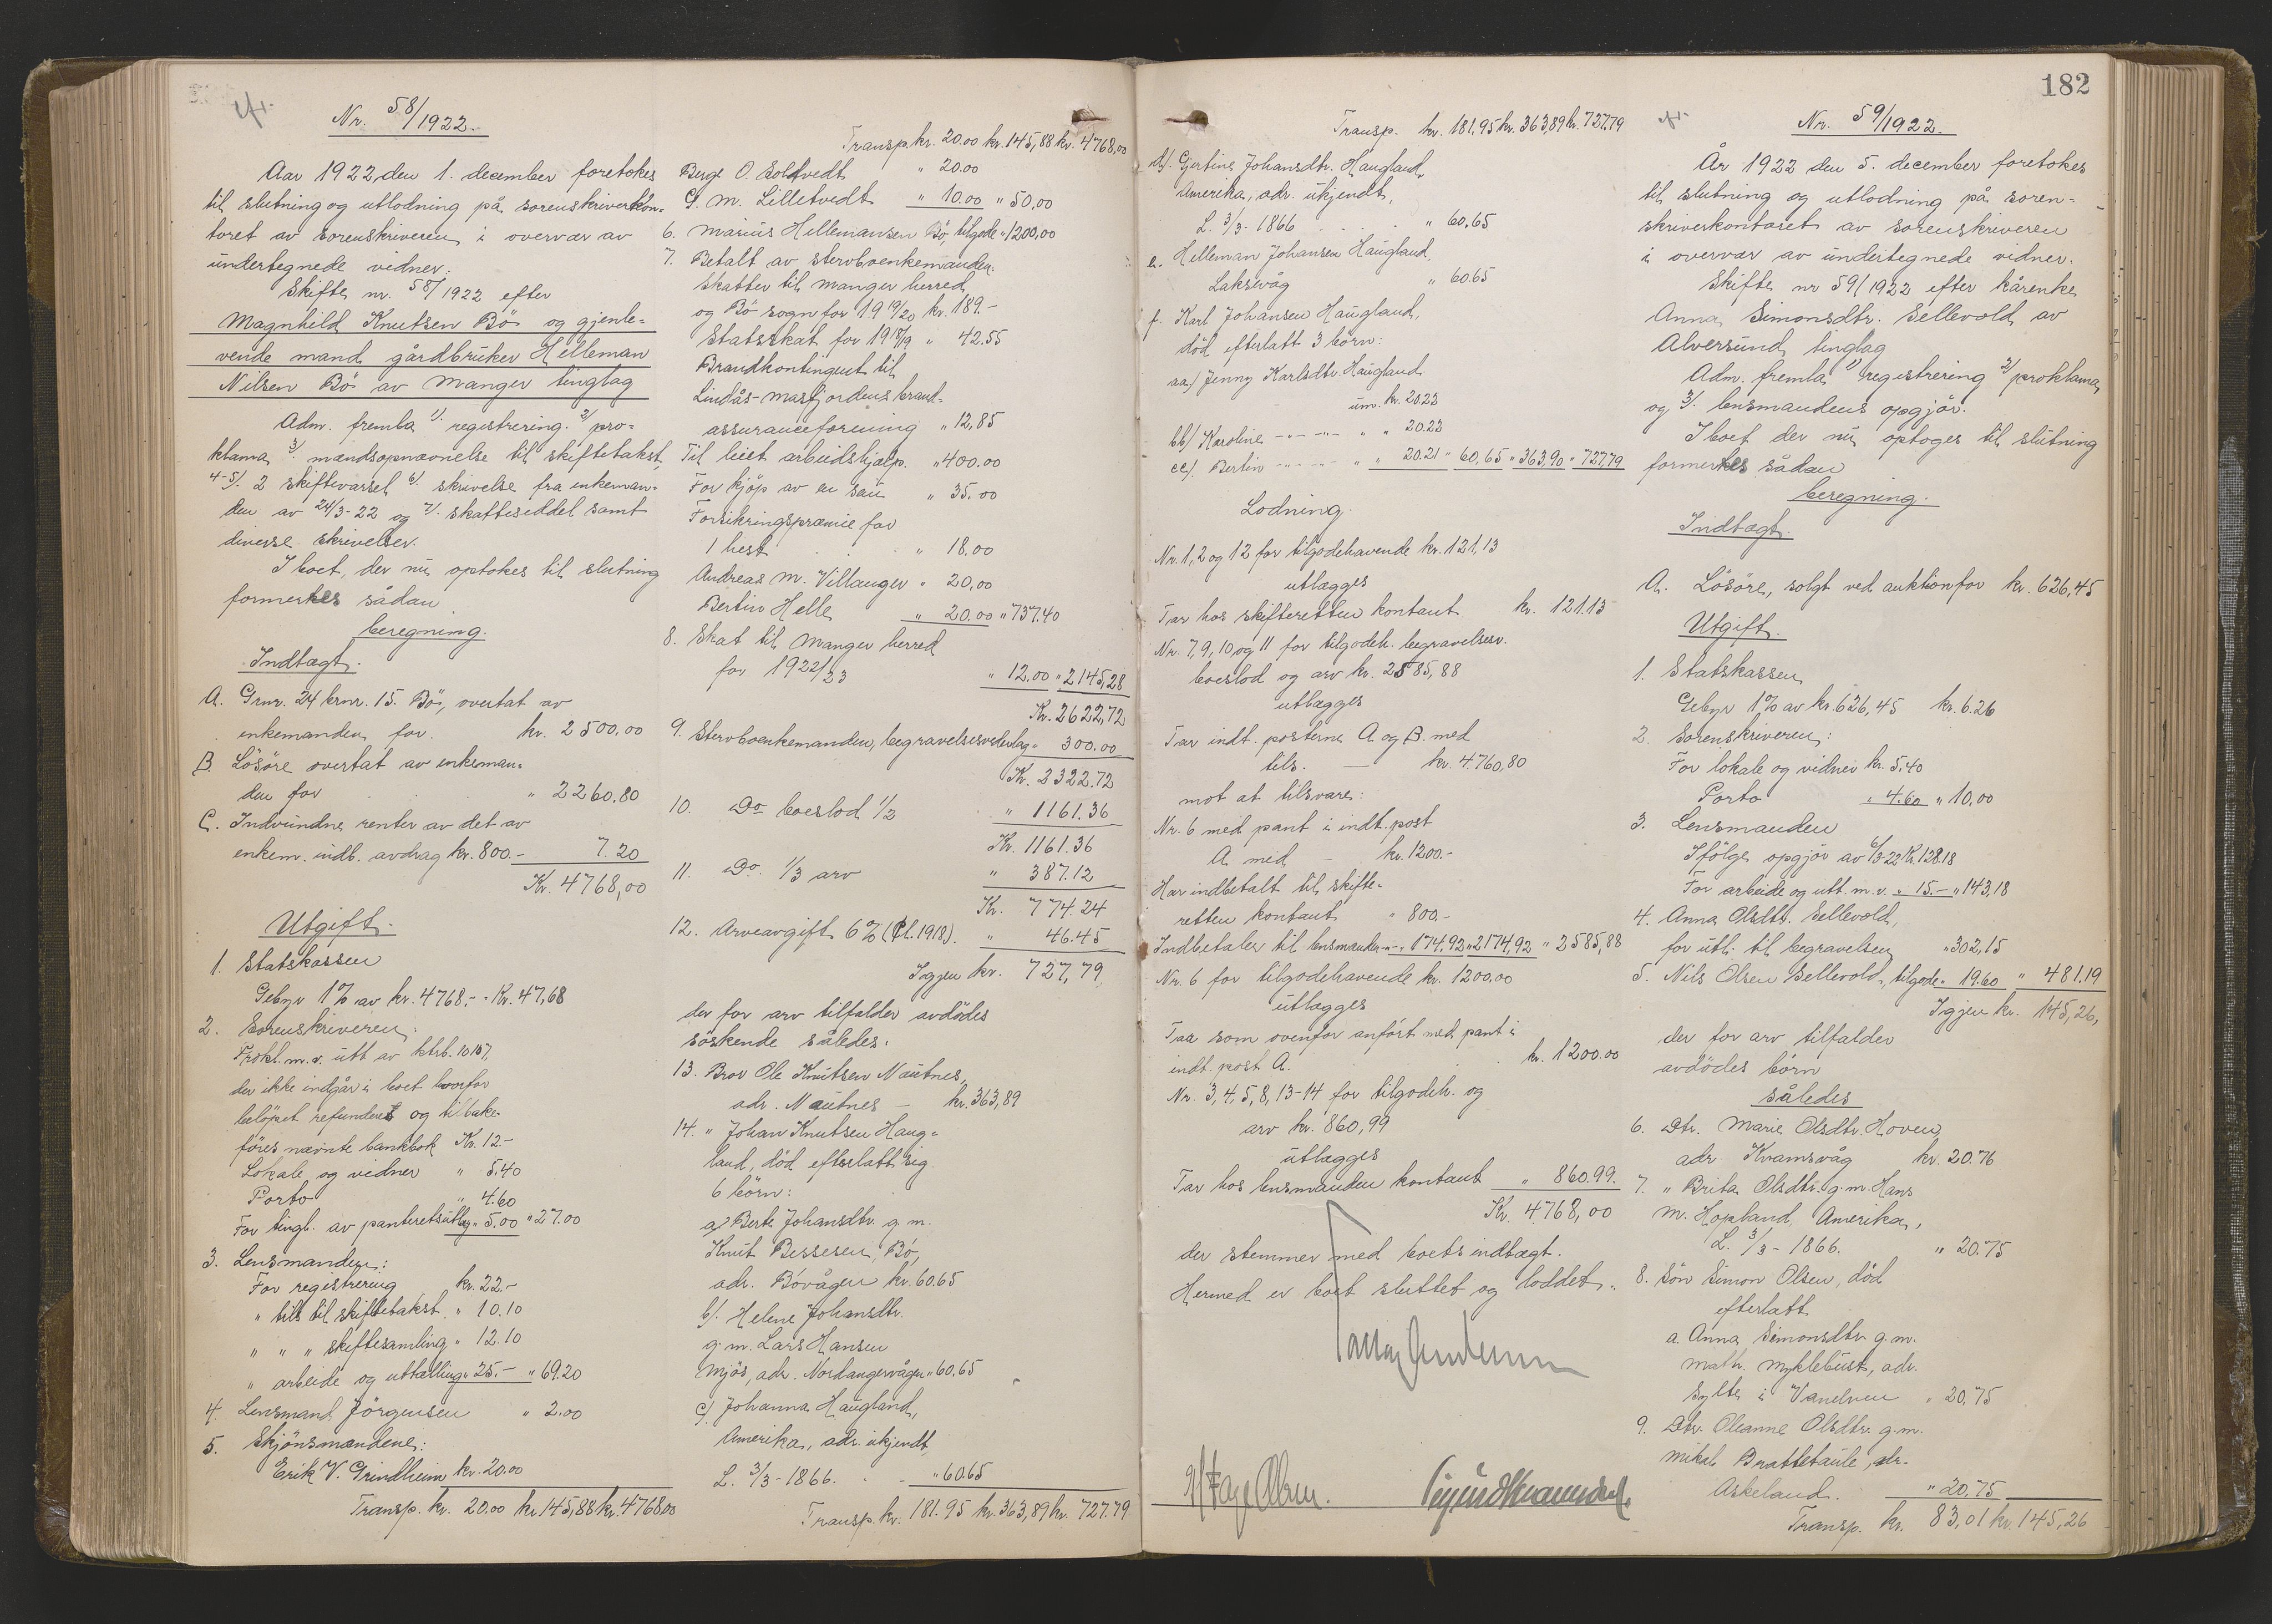 Nr. 58/1922.
Aar 1922 den 1. december foretokes
til slutning og utlodning på sorenskriverkon-
toret av sorenskriveren i overvær av
undertegnede vidner:
Skifte nr. 58/1922 efter
Magnhild Knutsen Bö og gjenle-
vende mand gårdbruker Helleman
Nilsen Bö av Manger tinglag
Adm. fremla 1/. registrering. 2/ pro-
klama 3/. mandsopnævnelse til skiftetakst
4-5/. 2 skiftevarsel 6/. skrivelse fra enkeman-
den av 24/3-22 og 7/. skatteseddel samt
diverse skrivelser.
I boet, der nu optokes til slutning
formerkes sådan
beregning.
Indtægt.
A. Grnr. 24 brnr. 15. Bö, overtat av
enkemanden for. kr. 2500.00
B. Lösöre overtat av enkeman-
den for " 2260.80
C. Indvundne renter av det av
enkem. indb. avdrag kr. 800.- 7.20
Kr. 4768,00
Utgift.
1. Statskassen
Gebyr 1% av kr. 4768.- Kr. 47,68
2. Sorenskriveren:
Prokl. m.v. utt av ktrb. 10107,
der ikke indgår i boet hvorfor
belöpet refunderes og tilbake-
föres nævnte bankbok Kr. 12.-
Lokale og vidner " 5.40
Porto " 4.60
For tingl. av panteretsutlæg " 5.00 " 27.00
3. Lensmanden:
For registrering kr. 22.-
" tils til skiftetakst " 10.10
" " " skiftesamling " 12.10
" arbeide og uttælling " 25.- " 69.20
4. Lensmand Jörgensen " 2.00
5. Skjönsmændene:
Erik V. Grindheim kr. 20.00
Transp. kr. 20.00 kr 145,88 kr. 4768.00
Transp. kr. 20.00 kr. 145,88 kr. 4768,00
Berge O. Soltvedt " 20.00
G. M. Lilletvedt " 10.00 " 50,00
6. Marius Hellemansen Bö, tilgode " 1200,00
7. Betalt av stervboenkemanden:
Skatter til Manger herred
og Bö sogn for 1919/20 kr. 189.-
Statsskat for 1918/19 " 42.55
Brandkontingent til
Lindås-Masfjordens brand-
assuranceforening " 12,85
Til leiet arbeidshjælp. " 400.00
For kjöp av en sau " 35.00
Forsikringspræmie for
1 hest " 18.00
Andreas M. Villanger " 20,00
Bertin Helle " 20.00 " 737.40
8. Skat til Manger herred
for 1922/23 " 12.00 " 2145,28
Kr. 2622,72
9. Stervboenkemanden, begravelsesvederlag " 300.00
Kr. 2322.72
10. Do boeslod 1/2 " 1161.36
Kr. 1161.36
11. Do. 1/3 arv " 387.12
Kr. 774.24
12. Arveavgift 6% (Pl. 1918). " 46.45
Igjen kr. 727,79
der for arv tilfalder avdödes
söskende således:
13. Bror Ole Knutsen Nautnes,
adr. Nautnes - kr. 363,89
14. " Johan Knutsen Haug-
land, död efterlatt sig
6 börn:
a) Berte Johansdtr. g. m.
Knut Bessesen, Bö,
adr. Bövågen kr. 60.65
b/. Helene Johansdtr.
g. m. Lars Hansen
Mjös, adr. Nordangervågen " 60.65
c) Johanna Haugland,
Amerika, adr. ukjendt
L. 3/3-1866. " 60.65
Transp. kr. 181.95 kr. 363,89 kr. 727.79
Transp. kr. 181,95 kr. 363,89 kr. 727,79
d). Gjertine Johansdtr. Haugland,
Amerika, adr. ukjendt,
L. 3/3-1866 " 60,65
e. Helleman Johansen Haugland,
Laksevåg " 60.65
f. Karl Johansen Haugland,
död efterlatt 3 börn:
aa) Jenny Karlsdtr. Haugland
um. kr. 20.22
bb) Karoline -"- -"- " " 20.22
cc). Bertin -"- -"- " " 20.21 " 60,65 " 363,90 " 727,79
Lodning.
Nr. 1, 2 og 12 for tilgodehavende kr. 121,13
utlægges
Tar hos skifteretten kontant kr. 121.13
Nr. 7, 9, 10 og 11 for tilgodeh. begravelsesv.
boeslod og arv kr. 2585,88
utlægges
Tar indt. posterne A. og B. med
tils. - kr. 4.760,80
mot at tilsvare:
Nr. 6 med pant i indt. post
A. med - kr. 1200.-
Har indbetalt til skifte-
retten kontant " 800.-
Indbetaler til lensmanden -"- 174,92 " 2174,92 " 2585,88
Nr. 6 for tilgodehavende kr. 1200.00
utlægges
Taa som ovenfor anfört med pant i
indt. post A. kr. 1200.00
Nr. 3, 4, 5, 8, 13-14 for tilgodeh. og
arv kr. 860,99
utlægges
Tar hos lensmanden kontant " 860.99.
Kr. 4768,00
der stemmer med boets indtægt.
Hermed er boet sluttet og loddet.
182
Nr. 59/1922.
År 1922 den 5. december foretokes
til slutning og utlodning på soren-
skriverkontoret av sorenskriveren
i overvær av undertegnede vidner.
Skifte nr 59/1922 efter kårenke
Anna Simonsdtr. Sellevold av
Alversund tinglag
Adm. fremla 1) registrering 2) proklama
og 3/. lensmandens opgjör.
I boet der nu optoges til slutning
formerkes sådan
beregning.
Indtægt.
A. Lösöre, solgt ved auktion for kr. 626,45
Utgift.
1. Statskassen
Gebyr 1% av kr. 626,45 kr. 6.26
2. Sorenskriveren:
For lokale og vidner kr. 5.40
Porto " 4.60 " 10.00
3. Lensmanden
Ifölge opgjör av 6/3-22 Kr. 128.18
For arbeide og utt. m.v. " 15.- " 143,18
4. Anna Olsdtr. Sellevold,
for utl. til begravelsen " 302,15
5. Nils Olsen Sellevold, tilgode " 19.60 " 481.19
Igjen kr. 145,26,
der for arv tilfalder
avdödes börn
således
6. Dtr. Marie Olsdtr. Hoven,
adr Kvamsvåg kr. 20.76
7. " Brita Olsdtr. g. m. Hans
M. Hopland, Amerika,
L. 3/3-1866. " 20.75
8. Sön Simon Olsen, död
efterlatt
a. Anna Simonsdtr g. m.
Math. Myklebust, adr.
Sylte i Vanelven " 20.75
9. Dtr. Oleanne Olsdtr. g. m.
Mikal Brattetaule, adr.
Askeland. " 20,75
Transp. kr. 83,01 kr. 145,26